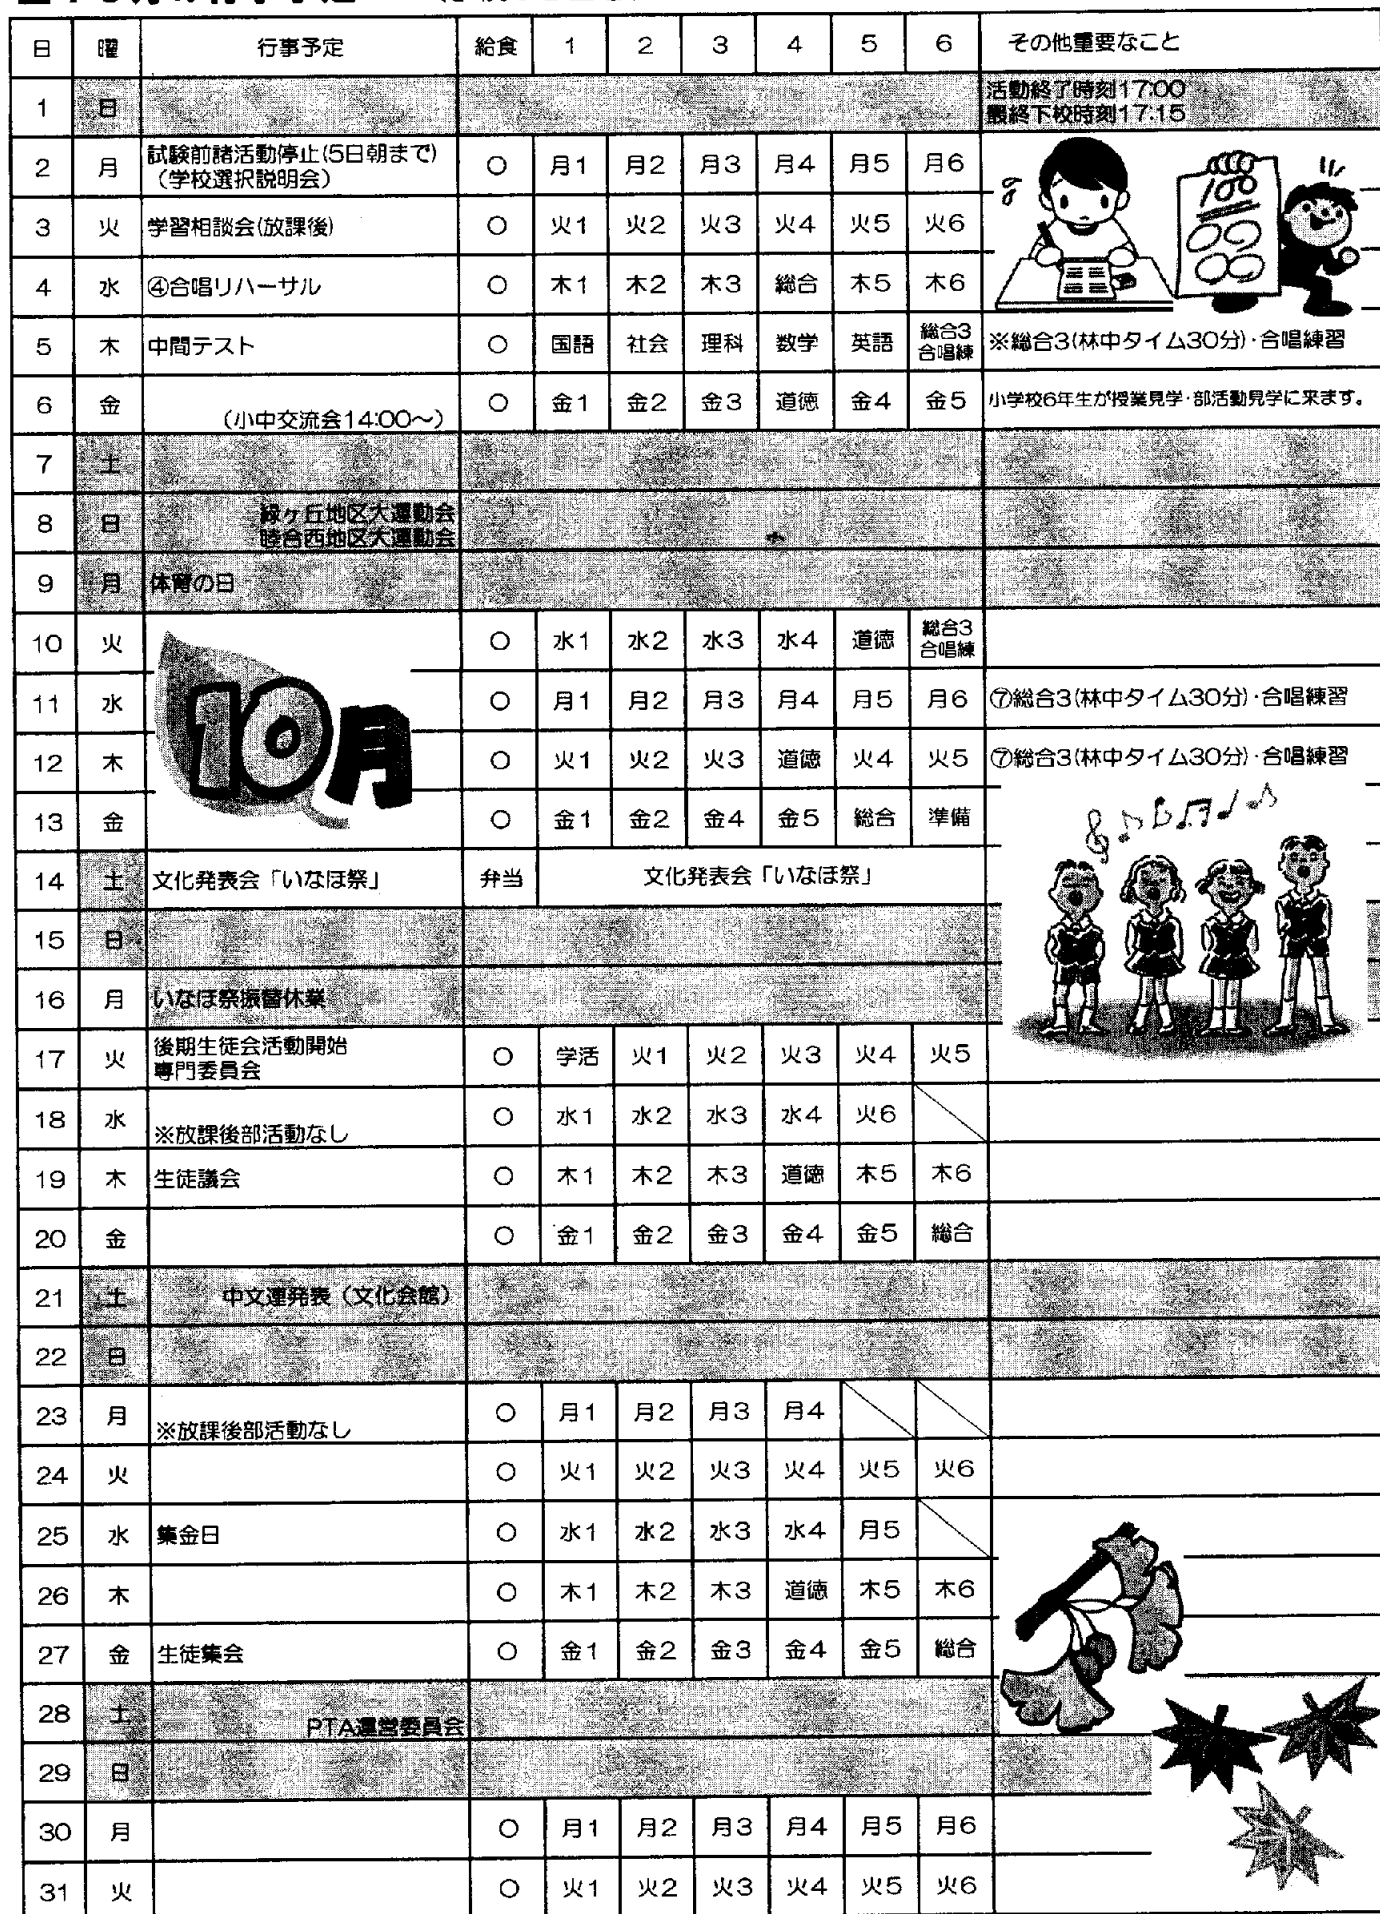 日 曜 行事予定 給食 1 2 3 4 5 6 その他重要なこと
1 日 活動終了時刻17:00
最終下校時刻17:15
2 月 試験前諸活動停止(5日朝まで) ○ 月1 月2 月3 月4 月5 月6
（学校選択説明会）
3 火 学習相談会(放課後) ○ 火1 火2 火3 火4 火5 火6
4 水 ④合唱リハーサル ○ 木1 木2 木3 総合 木5 木6
5 木 中間テスト ○ 国語 社会 理科 数学 英語 総合3 ※総合3(林中タイム30分)・合唱練習
合唱練
6 金 (小中交流会14:00〜) ○ 金1 金2 金3 道徳 金4 金5 小学校6年生が授業見学・部活動見学に来ます。
7 土
8 日 緑ヶ丘地区大運動会
睦合西地区大運動会
9 月 体育の日
10 火 ○ 水1 水2 水3 水4 道徳 総合3
合唱練
11 水 ○ 月1 月2 月3 月4 月5 月6 ⑦総合3(林中タイム30分)・合唱練習
10月
12 木 ○ 火1 火2 火3 道徳 火4 火5 ⑦総合3(林中タイム30分)・合唱練習
13 金 ○ 金1 金2 金4 金5 総合 準備
14 土 文化発表会「いなほ祭」 弁当 文化発表会「いなほ祭」
15 日
16 月 いなほ祭振替休業
17 火 後期生徒会活動開始 ○ 学活 火1 火2 火3 火4 火5
専門委員会
18 水 ※放課後部活動なし ○ 水1 水2 水3 水4 火6
19 木 生徒議会 ○ 木1 木2 木3 道徳 木5 木6
20 金 ○ 金1 金2 金3 金4 金5 総合
21 土 中文連発表（文化会館）
22 日
23 月 ※放課後部活動なし ○ 月1 月2 月3 月4
24 火 ○ 火1 火2 火3 火4 火5 火6
25 水 集金日 ○ 水1 水2 水3 水4 月5
26 木 ○ 木1 木2 木3 道徳 木5 木6
27 金 生徒集会 ○ 金1 金2 金3 金4 金5 総合
28 土 PTA運営委員会
29 日
30 月 ○ 月1 月2 月3 月4 月5 月6
31 火 ○ 火1 火2 火3 火4 火5 火6
100